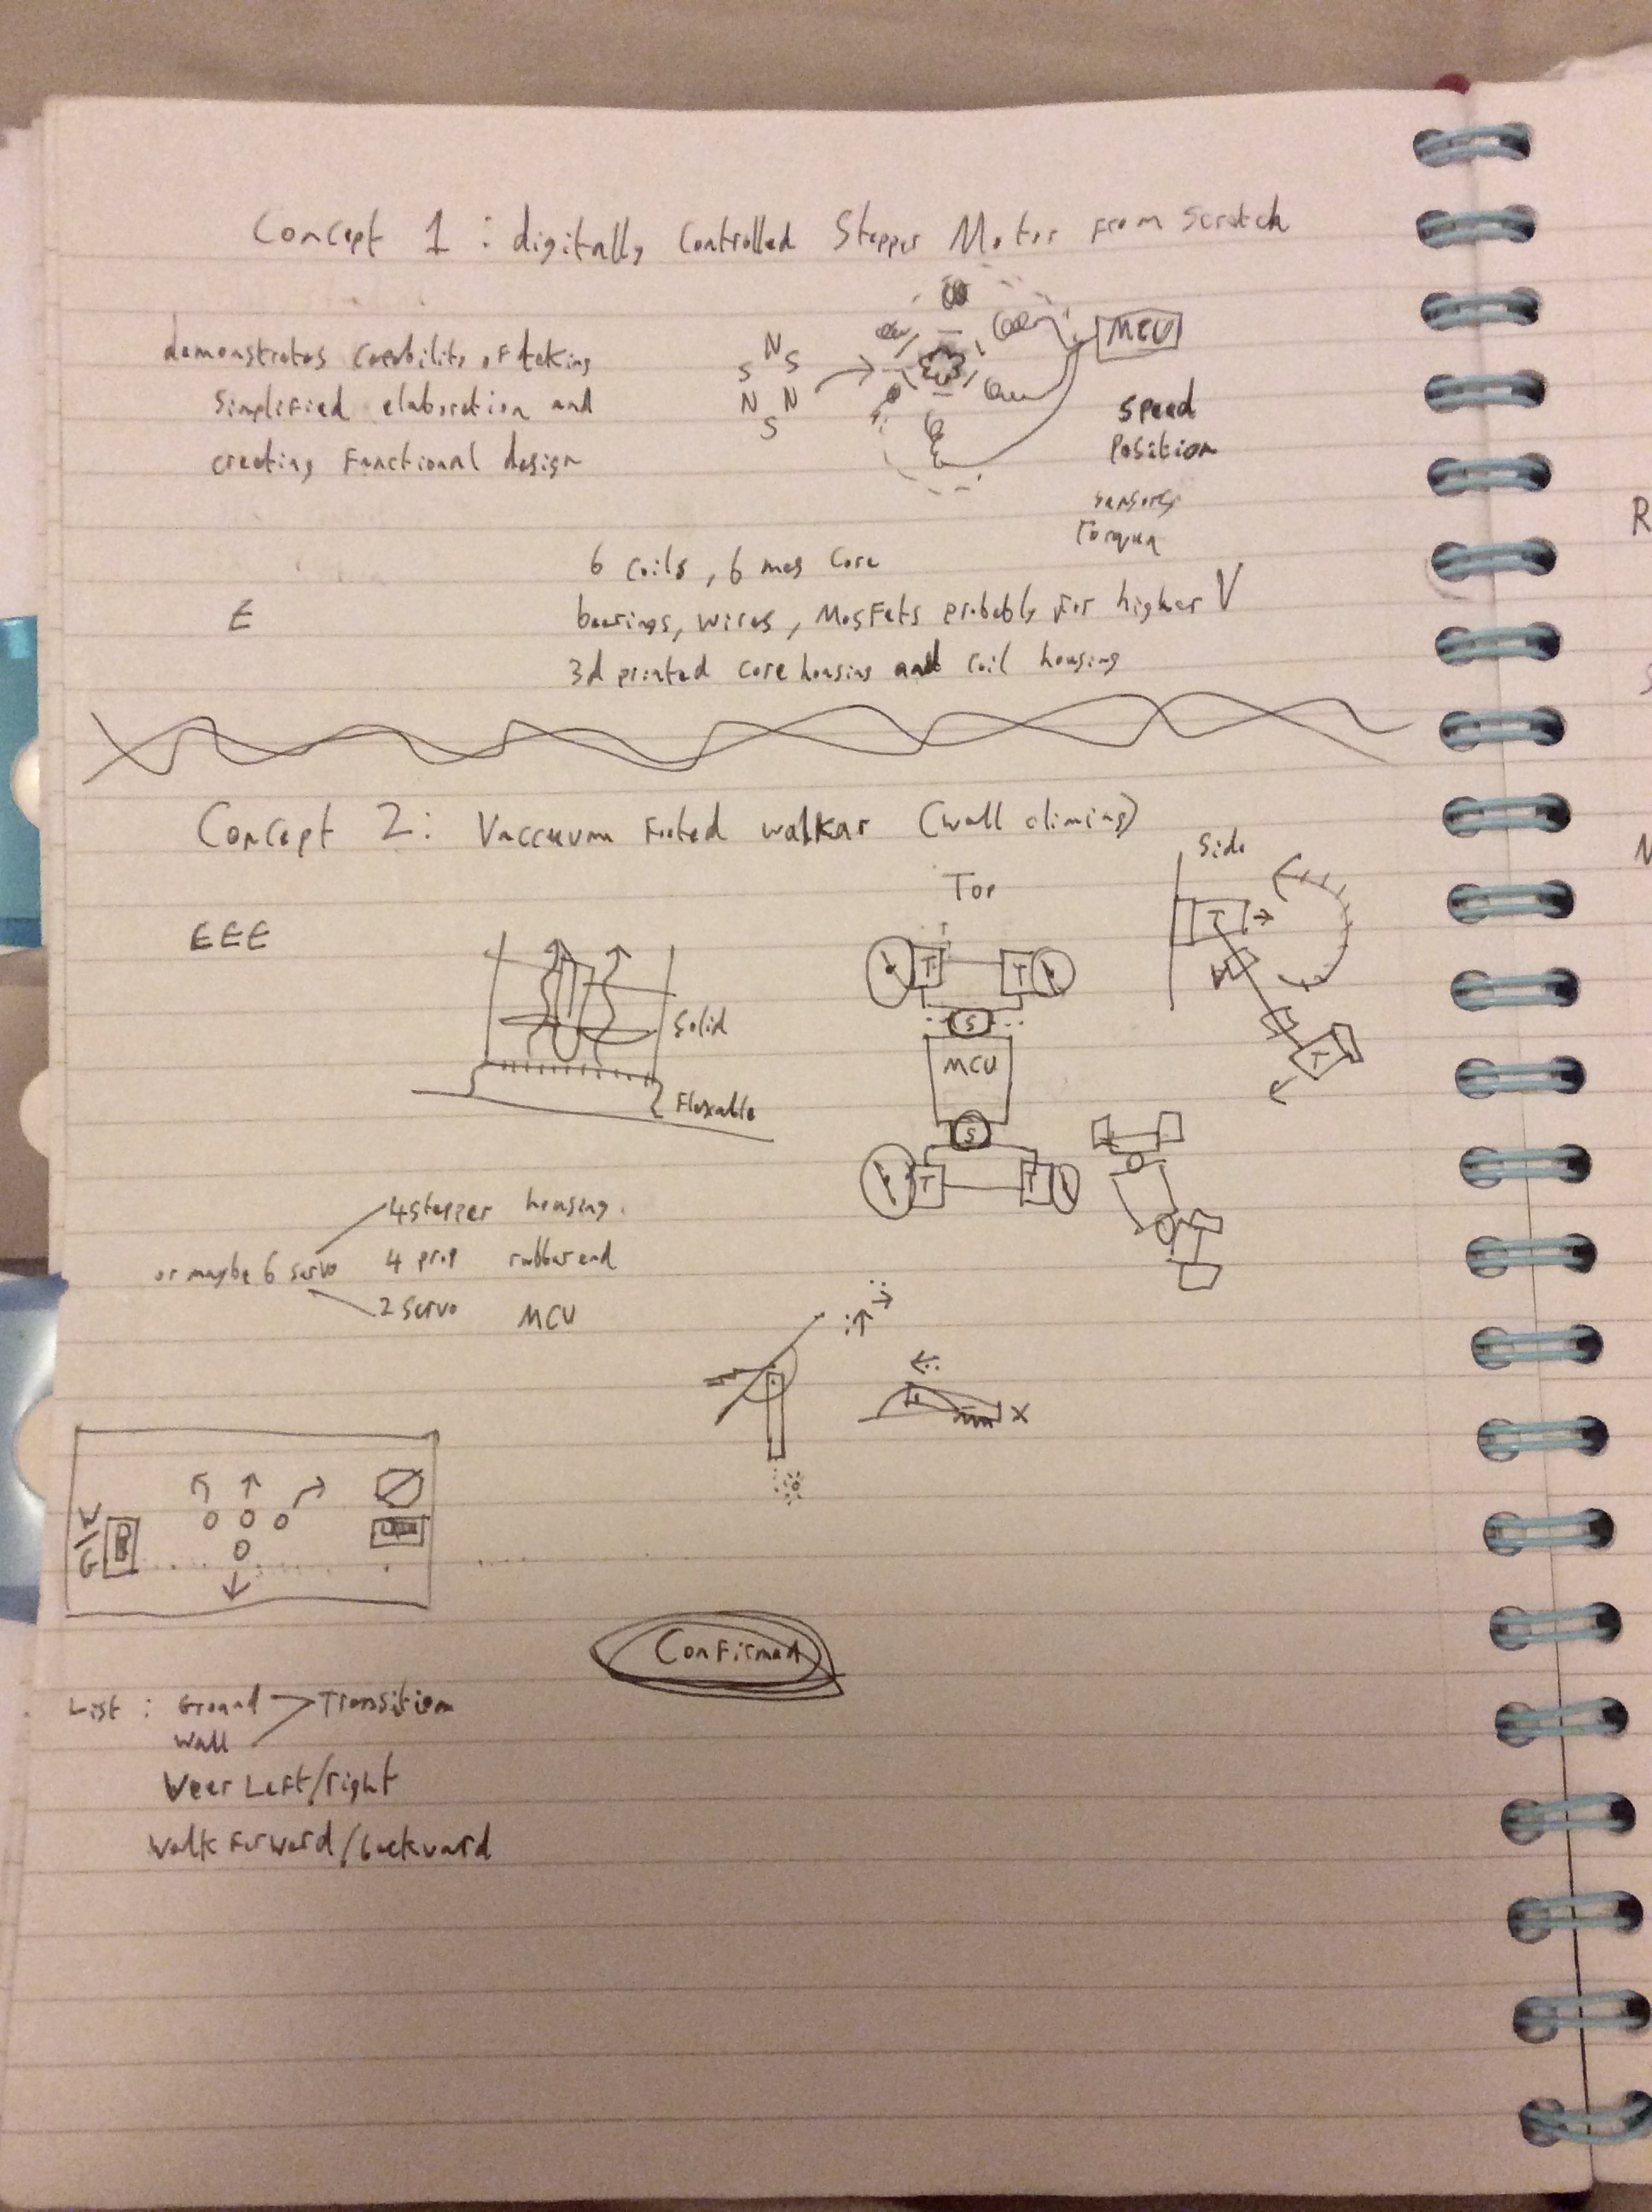 Concept 1 : digitally Controlled Stepper Motor From Scratch
demonstrates capability of taking
simplified elaboration and
creating Functional design
N
S S
N N
S
MCU
Speed
Position
sensors
Torque
6 coils, 6 mag core
E
bearings, wires, Mosfets probably for higher V
3d printed core housing and coil housing
Concept 2: Vaccuum Footed walkar (wall climing)
Side
Top
EEE
T
T T
S
Solid
MCU
T
Flexable
S
T T
4 stepper housing.
or maybe 6 servo 4 prop rubber end
2 servo MCU
X
W/G
Confirmed
List : Ground Transition
Wall
Veer Left/right
Walk Forward/backward
R